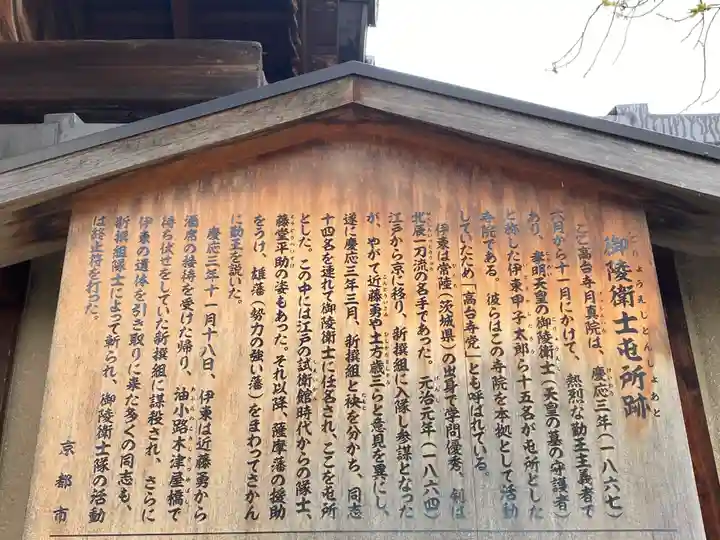 御陵衛士屯所跡
ごりょうえしとんしょあと
ここ高台寺月真院は、慶応三年(一八六七)
六月から十一月にかけて、熱烈な勤王主義者で
あり、孝明天皇の御陵衛士(天皇の墓の守護者)
と称した伊東甲子太郎ら十五名が屯所とした
寺院である。彼らはこの寺院を本拠として活動
していたため「高台寺党」とも呼ばれている。
伊東は常陸(茨城県)の出身で学問優秀、剣は
北辰一刀流の名手であった。元治元年(一八六四)
江戸から京に移り、新撰組に入隊し参謀となった
が、やがて近藤勇や土方歳三らと意見を異にし、
遂に慶応三年三月、新撰組と袂を分かち、同志
十四名を連れて御陵衛士に任名され、ここを屯所
とした。この中には江戸の試衛館時代からの隊士、
藤堂平助の姿もあった。それ以降、薩摩藩の援助
をうけ、雄藩(勢力の強い藩)をまわってさかん
に勤王を説いた。
慶応三年十一月十八日、伊東は近藤勇から
酒席の接待を受けた帰り、油小路木津屋橋で
待ち伏せをしていた新撰組に謀殺され、さらに
伊東の遺体を引き取りに来た多くの同志も、
新撰組隊士によって斬られ、御陵衛士隊の活動
は終止符を打った。
京都市